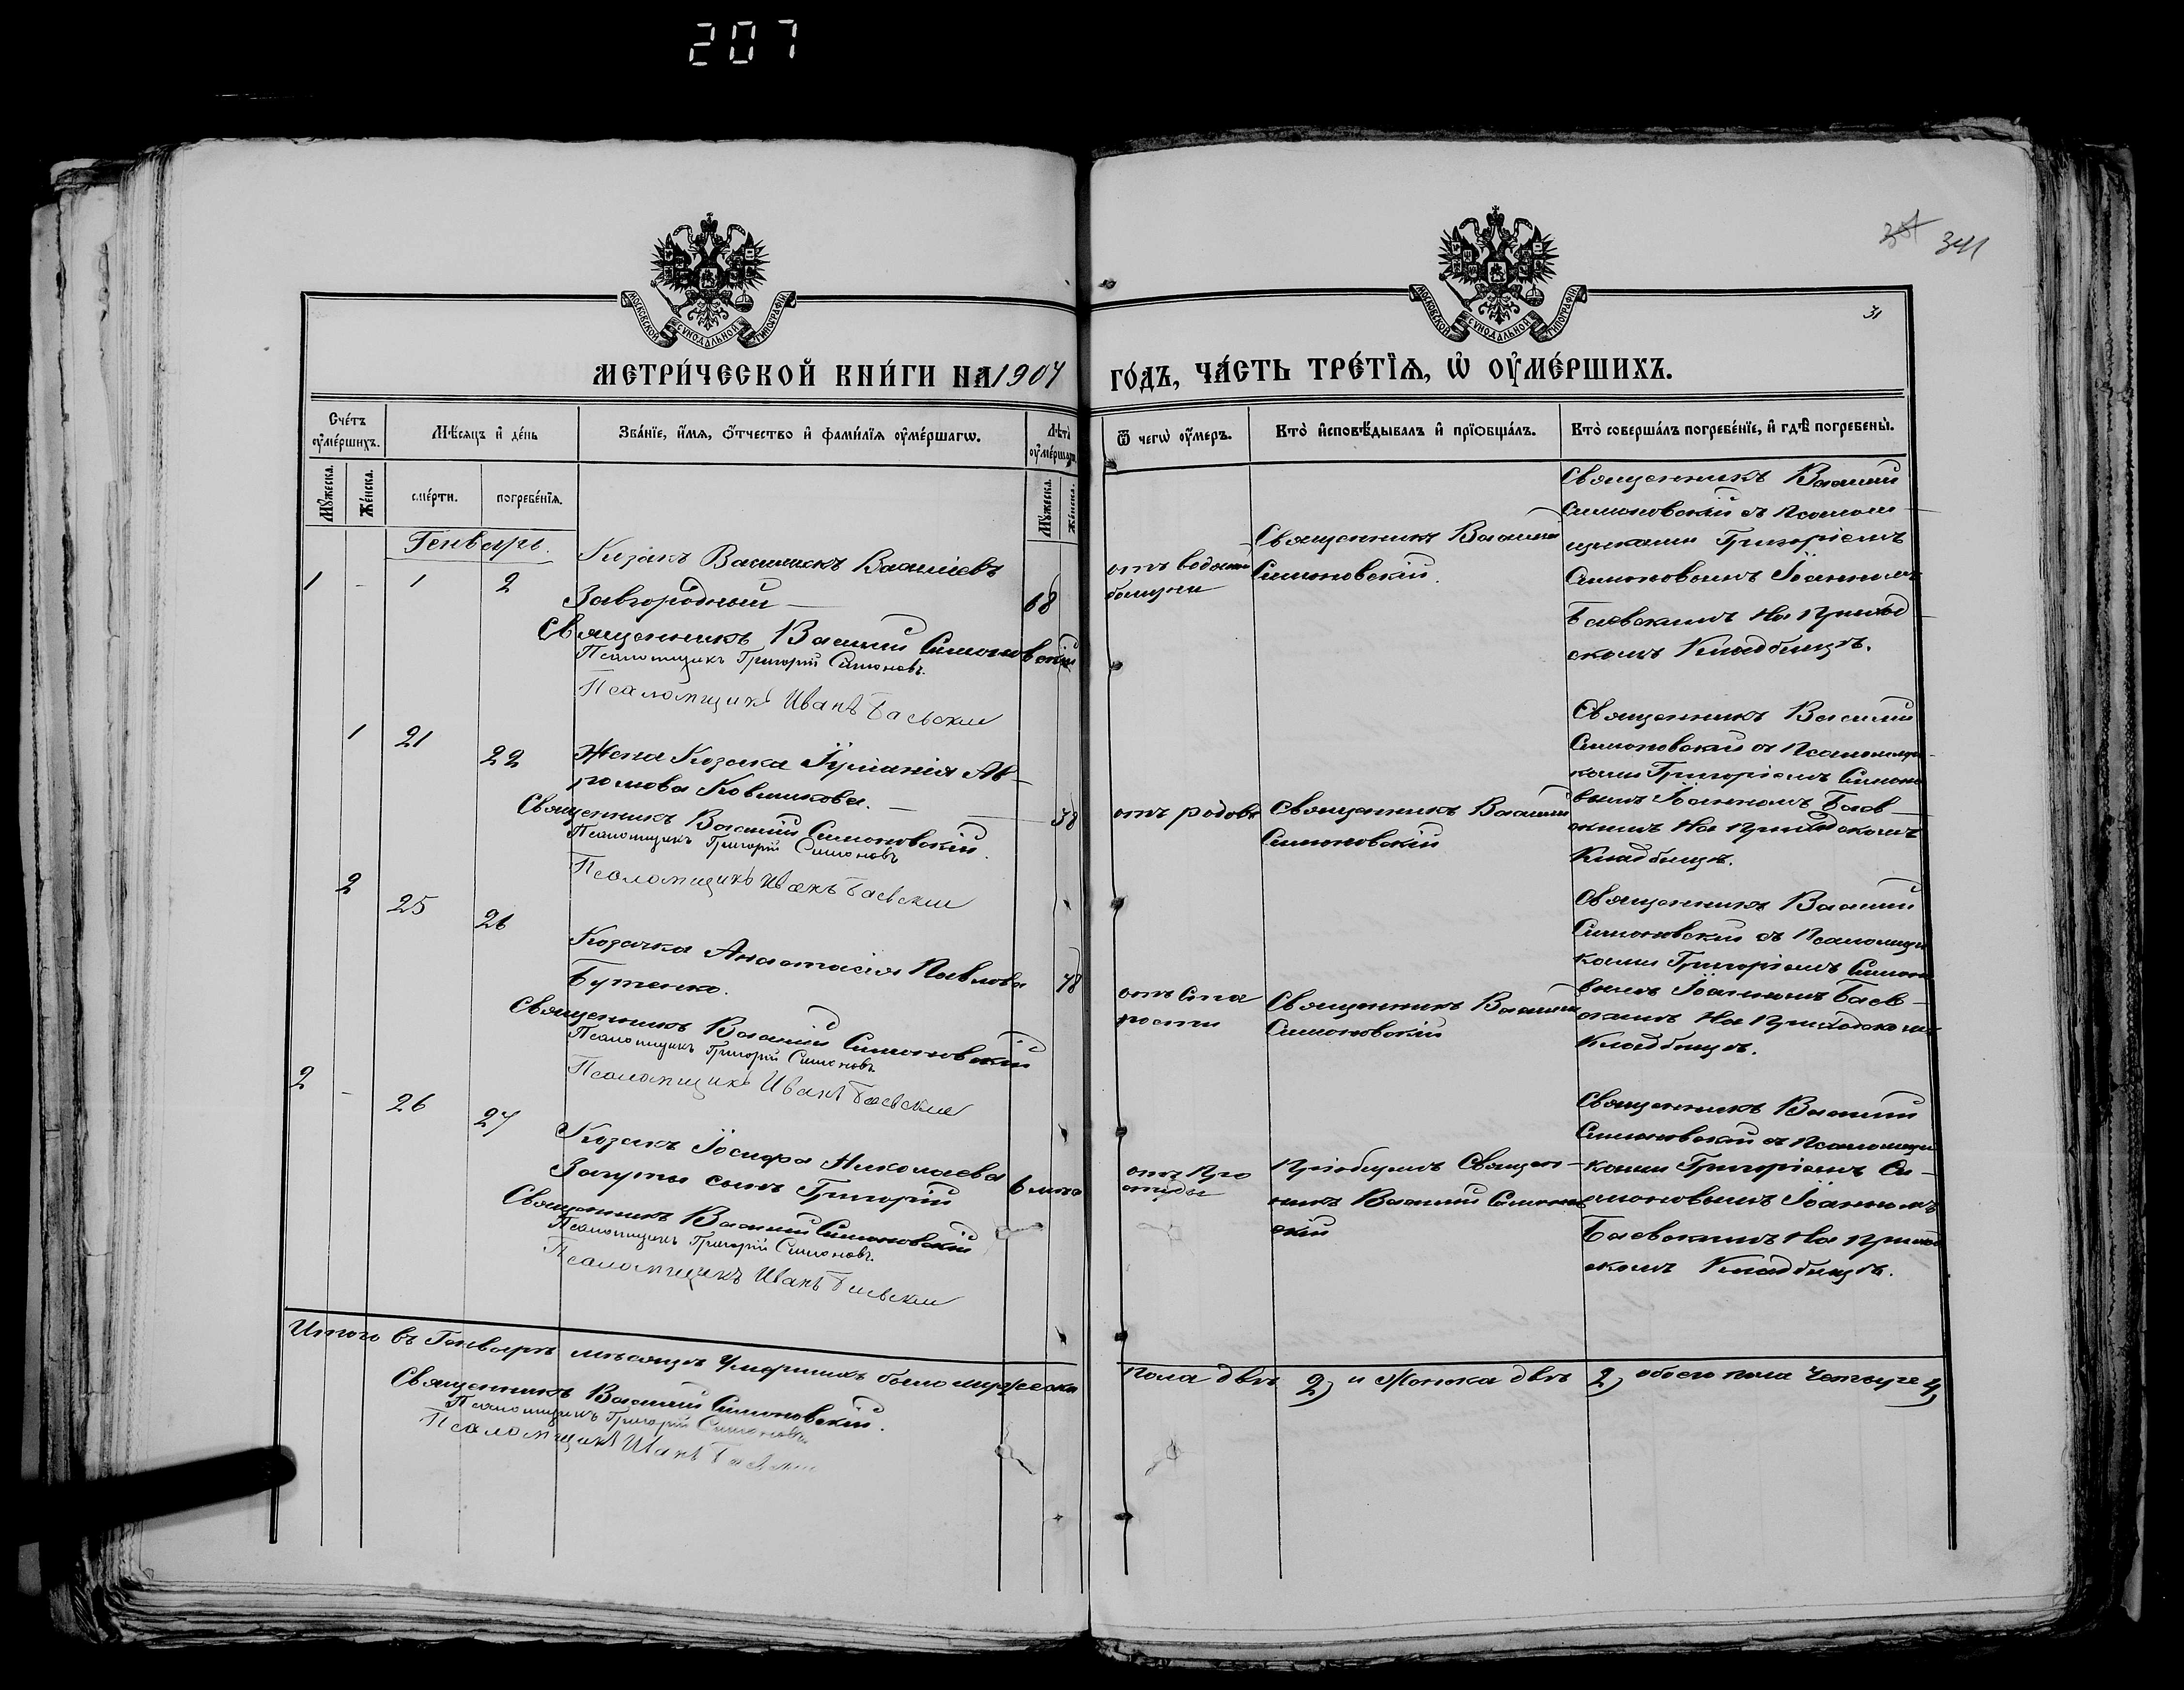 207
341
31
МОСКОВСКОЙ СѴНОДАЛЬНОЙ ТИПОГРАФІИ
МОСКОВСКОЙ СѴНОДАЛЬНОЙ ТИПОГРАФІИ
МЕТРИ́ЧЕСКОЙ КНИ́ГИ НА 1907
ГО́ДЪ, ЧА́СТЬ ТРЕ́ТЇѦ, Ѡ ОУ҆МЕ́РШИХЪ.
Сче́тъ оу҆ме́ршихъ.
Мѣ́сяцъ и҆ де́нь
Зва́нїе, и҆́мя, ѻ҆́тчество и҆ фами́лїя оу҆ме́ршагѡ.
Лѣ́та оу҆ме́ршагѡ
Мꙋ́жеска.
Же́нска.
сме́рти.
погребе́нїя.
Мꙋ́жеска.
Же́нска.
Ѿ чегѡ̀ оу҆́меръ.
Кто̀ и҆сповѣ́дывалъ и҆ прїѡбща́лъ.
Кто̀ соверша́лъ погребе́нїе, и҆ гдѣ̀ погребены̀.
Генварь.
1 - 1 2
Козакъ Василискъ Василіевъ
Завгородный — 68
Священникъ Василій Симоновскій
Псаломщикъ Григорій Симоновъ.
Псаломщикъ Иванъ Баевскій
отъ водяной
болѣзни
Священникъ Василій
Симоновскій.
Священникъ Василій
Симоновскій съ Псалом-
щиками Григоріемъ
Симоновымъ Іоанномъ
Баевскимъ на Приход
скомъ Кладбищѣ.
1 21 22
Жена Козака
Ковшикова. — 38
Священникъ Василій Симоновскій.
Псаломщикъ Григорій Симоновъ
Псаломщикъ Иванъ Баевскій
отъ родовъ
Священникъ Василій
Симоновскій
Священникъ Василій
Симоновскій съ Псаломщи-
ками Григоріемъ Симоно
вымъ Іоанномъ Баев-
скимъ на Приходскомъ
Кладбищѣ.
2 25 26
Козачка Анастасія Павлова
Бутенко. 78
Священникъ Василій Симоновскій
Псаломщикъ Григорій Симоновъ.
Псаломщикъ Иванъ Баевскій
отъ Ста
рости
Священникъ Василій
Симоновскій
Священникъ Василій
Симоновскій съ Псаломщи
ками Григоріемъ Симоно
вымъ Іоанномъ Баев-
скимъ на Приходскомъ
Кладбищѣ.
2 - 26 27
Козака Іосифа Николаева
Загуты сынъ Григорій 6 мѣся
Священникъ Василій Симоновскій
Псаломщикъ Григорій Симоновъ.
Псаломщикъ Иванъ Баевскій
отъ Про
студы
Пріобщилъ Священ-
никъ Василій Симонов
скій
Священникъ Василій
Симоновскій съ Псаломщи
ками Григоріемъ Си-
моновымъ Іоанномъ
Баевскимъ на Приход
скомъ Кладбищѣ.
Итого въ Генварѣ мѣсяцѣ Умершихъ было мужеска
пола два 2) и Женска двѣ 2) обоего пола Четыре 4)
Священникъ Василій Симоновскій.
Псаломщикъ Григорій Симоновъ.
Псаломщикъ Иванъ Баевскій